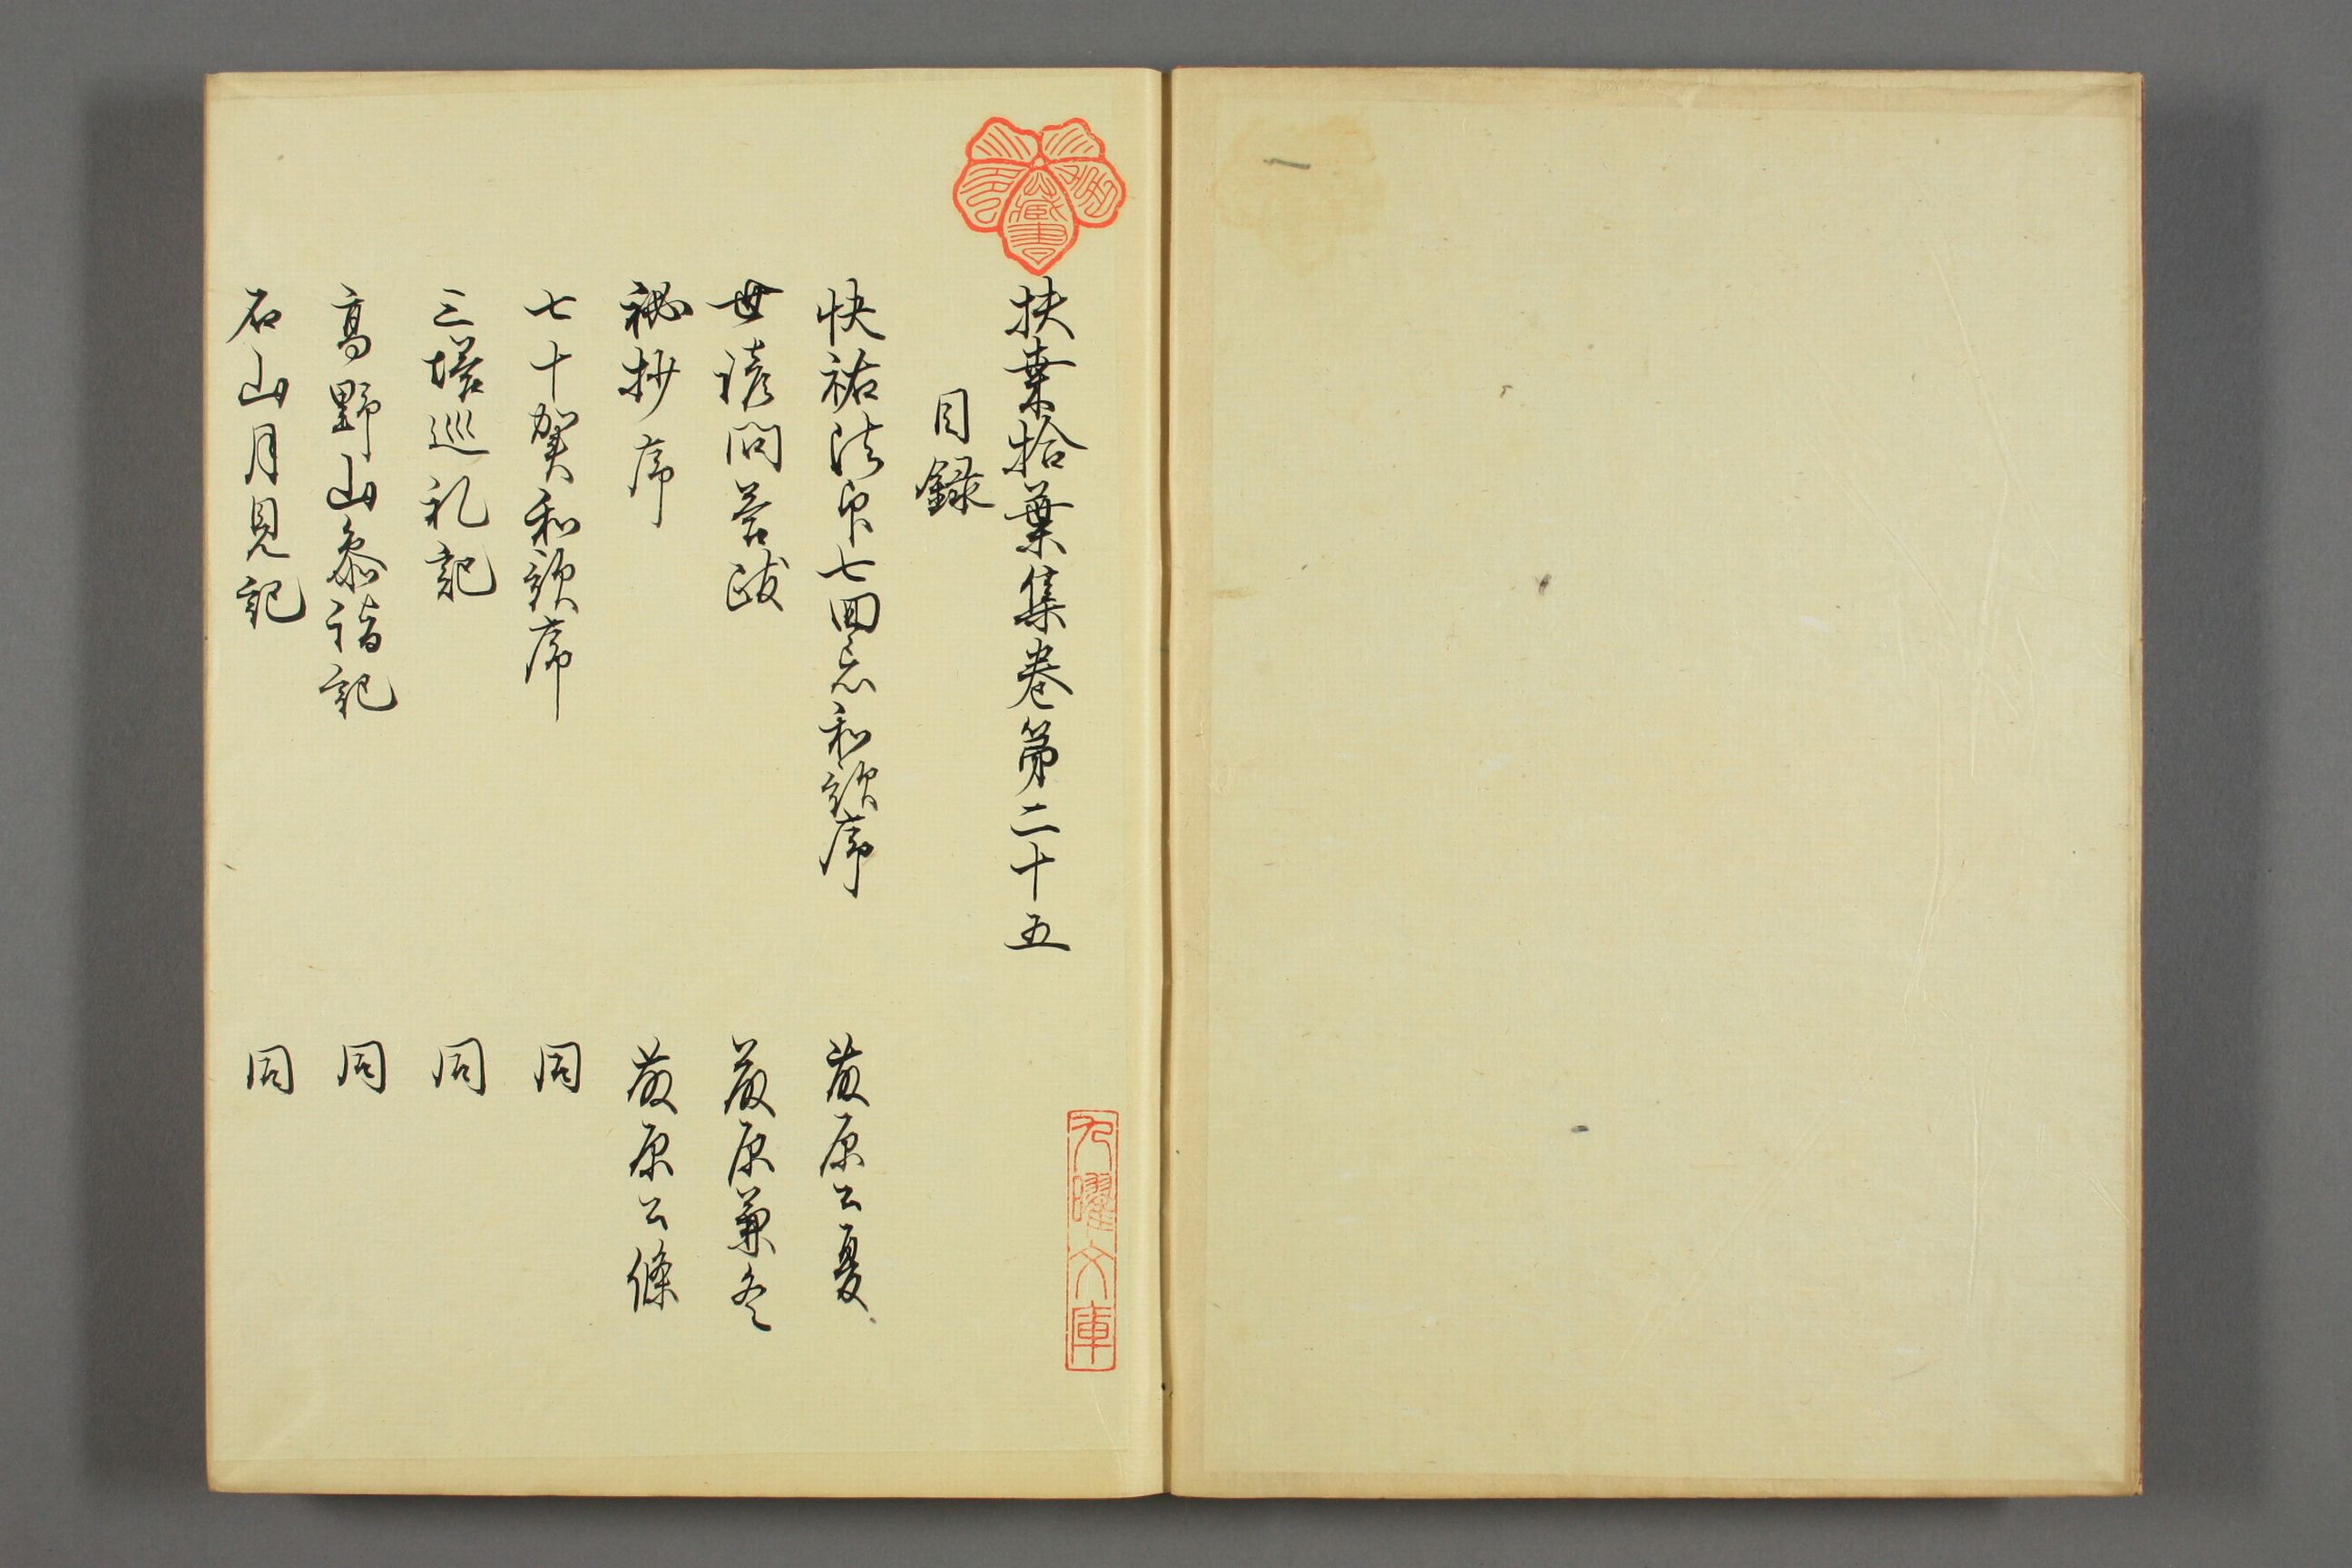 扶桑拾葉集巻第二十五
目録
快祐法印七回忌和歌序 藤原公夏
世諺問答跋 藤原兼冬
秘抄序 藤原公條
七十賀和歌序 同
三塔巡礼記 同
高野山参詣記 同
石山月見記 同
九曜文庫